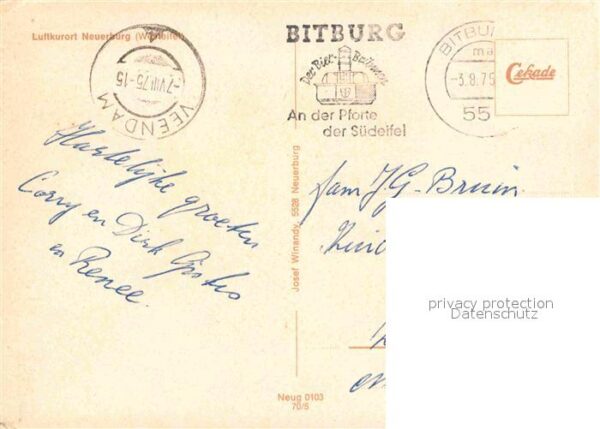 Luftkurort Neuerburg (Westeifel)
VEENDAM
-7.VIII.75-15
BITBURG
Der Bier-Ballungs
An der Pforte
der Südeifel
BITBU
-3.8.75
55
Cekade
Hartelijke groeten
Corry en Dirk
en Renee.
Josef Winandy, 5528 Neuerburg
fam J G-Bruin
privacy protection
Datenschutz
Neug 0103
70/5